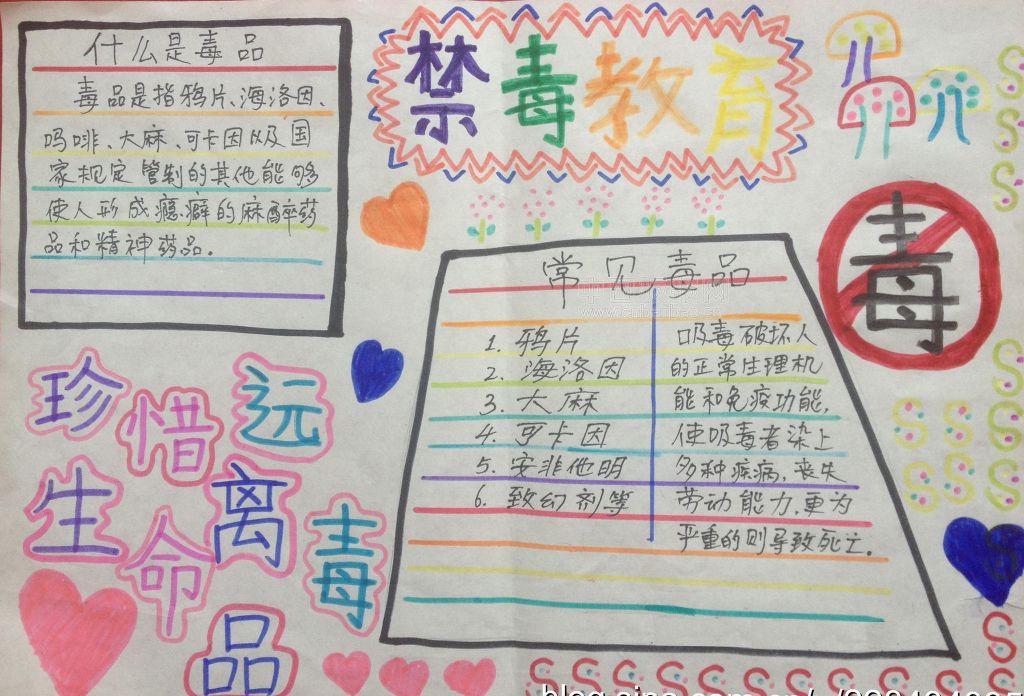 什么是毒品
毒品是指鸦片、海洛因、
吗啡、大麻、可卡因以及国
家规定管制的其他能够
使人形成瘾癖的麻醉药
品和精神药品。
禁毒教育
毒
常见毒品
www.chibanbao.cn
1. 鸦片
2. 海洛因
3. 大麻
4. 可卡因
5. 安非他明
6. 致幻剂等
吸毒破坏人
的正常生理机
能和免疫功能,
使吸毒者染上
多种疾病,丧失
劳动能力,更为
严重的则导致死亡。
珍惜
生命
远离
毒品